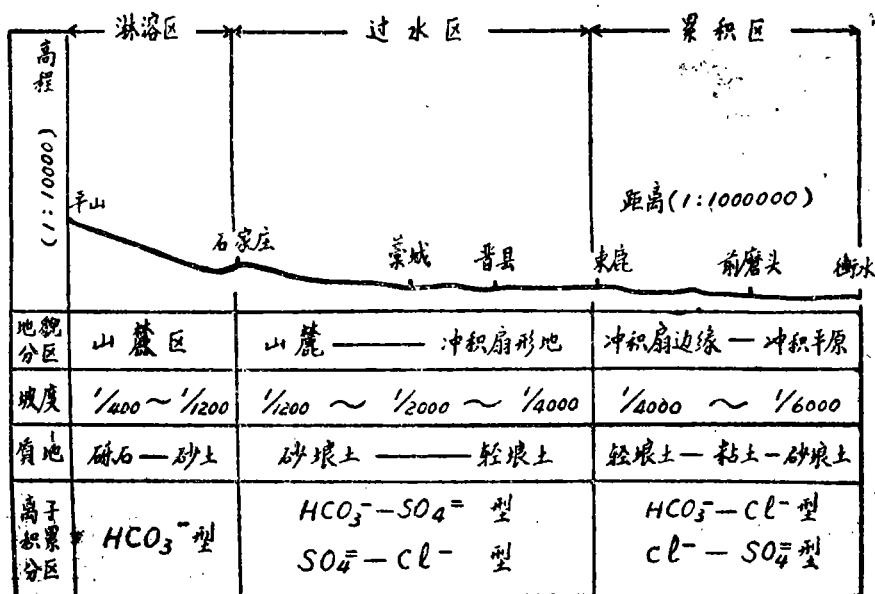 淋溶区 过水区 累积区
高程 (1:10000)
平山
距离(1:1000000)
石家庄 藁城 晋县 束鹿 前磨头 衡水
地貌分区 山麓区 山麓——冲积扇形地 冲积扇边缘—冲积平原
坡度 1/400～1/1200 1/1200 ～ 1/2000 ～ 1/4000 1/4000 ～ 1/6000
质地 砾石—砂土 砂壤土——轻壤土 轻壤土—粘土-砂壤土
离子积累分区 HCO₃⁻型 HCO₃⁻—SO₄⁼ 型 HCO₃⁻—Cl⁻ 型
SO₄⁼—Cl⁻ 型 Cl⁻—SO₄⁼型